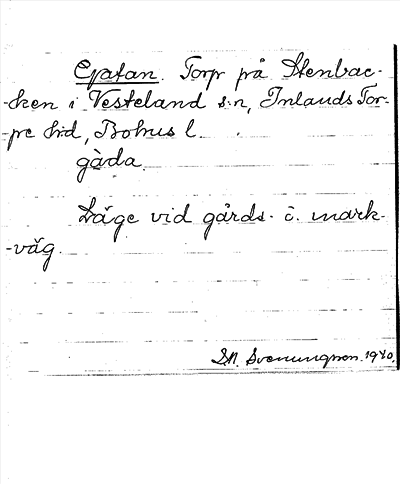 Gatan. Torp på Stenbac-
-ken i Vesteland s:n, Inlands Tor-
-pe h:d, Bohus l.
gàda.
Läge vid gårds- o. mark-
-väg.
S.N. Svenungson. 1920.